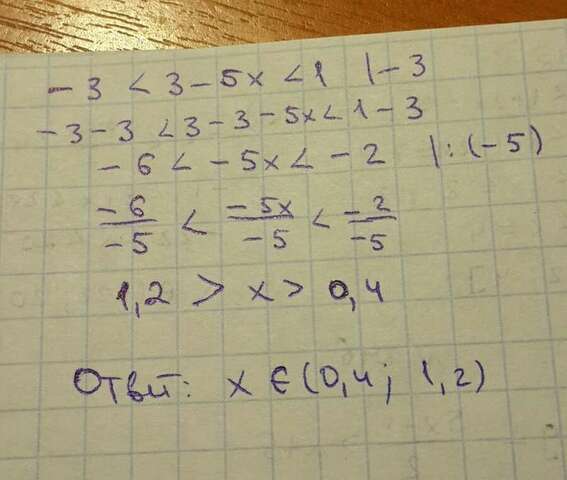 -3 < 3-5x < 1 |-3
-3-3 < 3-3-5x < 1-3
-6 < -5x < -2 |:(-5)
-6/-5 < -5x/-5 < -2/-5
1,2 > x > 0,4
Ответ: x ∈ (0,4; 1,2)